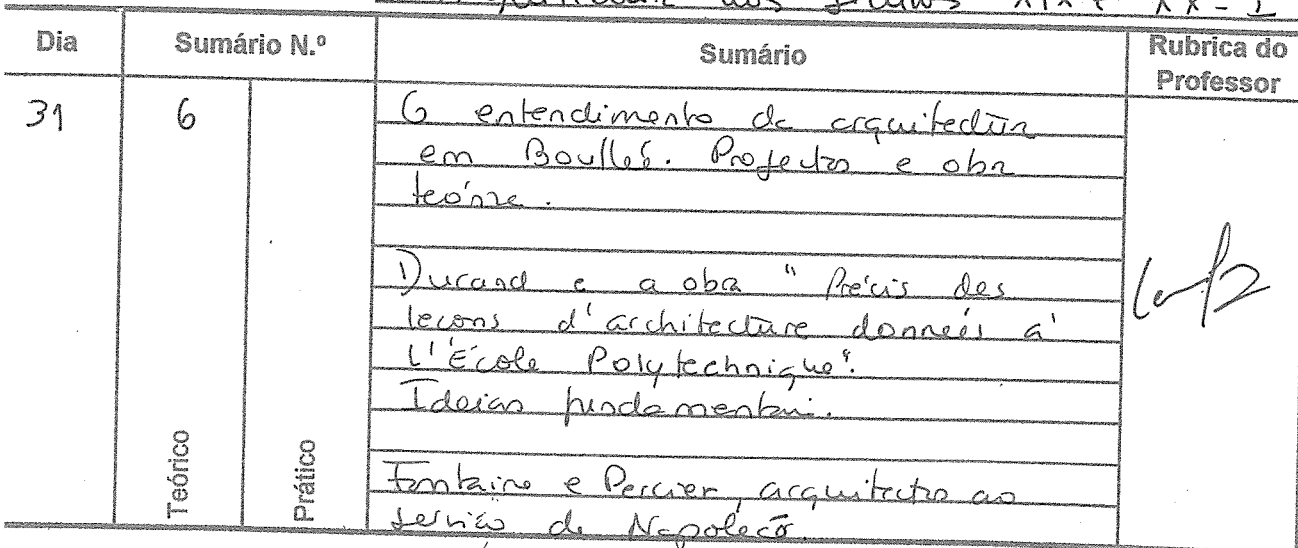 dos XIX e XX - I
Dia Sumário N.º Sumário Rubrica do Professor
31 6 O entendimento da arquitectura
em Boullée. Projectos e obra
teórica.
Durand e a obra "Précis des
leçons d'architecture données à
L'École Polytechnique".
Ideias fundamentais.
Teórico Prático
Fontaine e Percier, arquitectos ao
serviço de Napoleão.